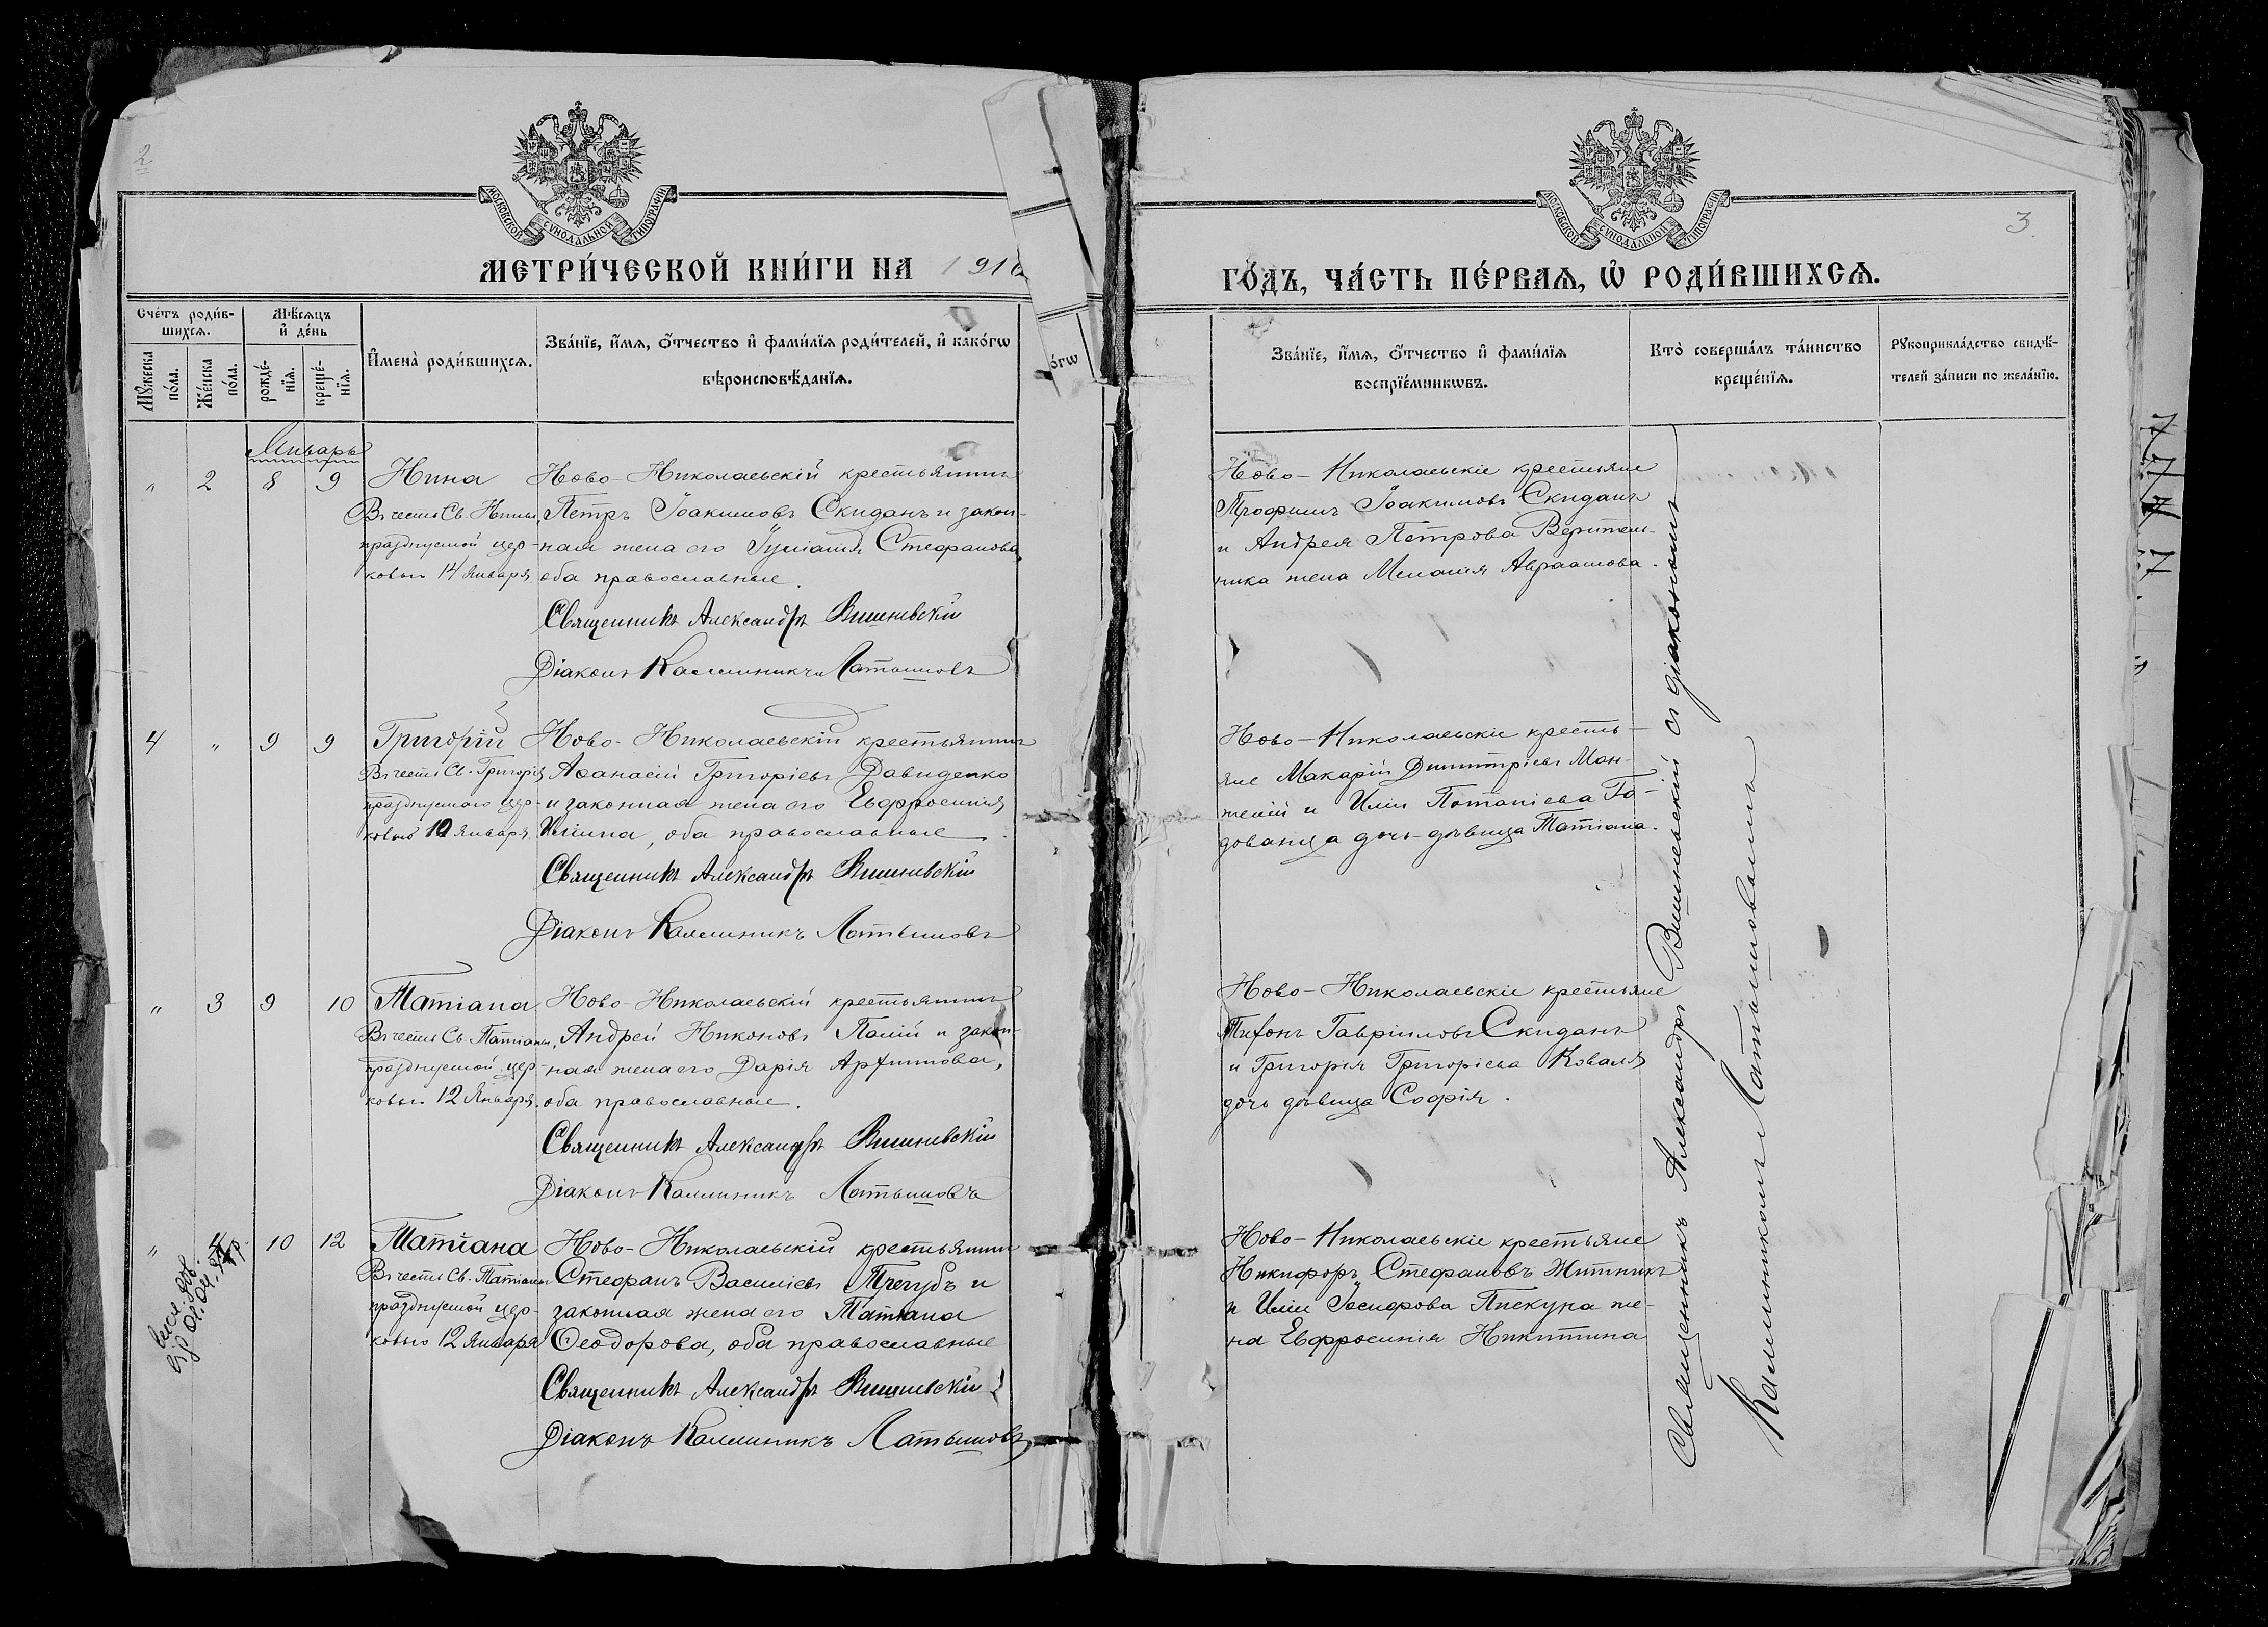 2
МОСКОВСКОЙ СѴНОДАЛЬНОЙ ТИПОГРАФІИ
МЕТРИ́ЧЕСКОЙ КНИ́ГИ НА 191
Сче́тъ роди́в-
шихсѧ.
Мѣ́сѧцъ
и҆ де́нь
Мꙋ́жеска
по́ла.
Же́нска
по́ла.
рожде́-
нїѧ.
креще́-
нїѧ.
И҆мена̀ роди́вшихсѧ.
Зва́нїе, и҆́мѧ, ѻ҆́тчество и҆ фами́лїѧ роди́телей, и҆ како́гѡ
вѣроисповѣ́данїѧ.
Январь
" 2 8 9
Нина
Въ честь Св. Нины,
празднуемой цер-
ковью 14 Января
Ново-Николаевскій крестьянинъ
Петръ Іоакимовъ Скиданъ и закон-
ная жена его Іуліанія Стефанова,
оба православные.
Священникъ Александръ Вишневскій
Діаконъ Каллиникъ Латышовъ
4 " 9 9
Григорій
Въ честь Св. Григорія
празднуемаго цер-
ковью 10 Января
Ново-Николаевскій крестьянинъ
Аѳанасій Григоріевъ Давиденко
и законная жена его Евфросинія
Ильина, оба православные
Священникъ Александръ Вишневскій
Діаконъ Каллиникъ Латышовъ
" 3 9 10
Татіана
Въ честь Св. Татіаны,
празднуемой цер-
ковью 12 Января.
Ново-Николаевскій крестьянинъ
Андрей Никоновъ Палій и закон-
ная жена его Дарія Артимова,
оба православные.
Священникъ Александръ Вишневскій
Діаконъ Каллиникъ Латышовъ
" 4 10 12
Татіана
Въ честь Св. Татіаны
празднуемой цер-
ковью 12 Января
Ново-Николаевскій крестьянинъ
Стефанъ Василіевъ Трегубъ и
законная жена его Татіана
Ѳеодорова, оба православные
Священникъ Александръ Вишневскій
Діаконъ Каллиникъ Латышовъ
о́гѡ
МОСКОВСКОЙ СѴНОДАЛЬНОЙ ТИПОГРАФІИ
3
ГО́ДЪ, ЧА́СТЬ ПЕ́РВАѦ, Ѡ҆ РОДИ́ВШИХСѦ.
Зва́нїе, и҆́мѧ, ѻ҆́тчество и҆ фами́лїѧ
воспрїе́мникѡвъ.
Кто̀ соверша́лъ та́инство
креще́нїѧ.
Рꙋкоприкла́дство свидѣ́-
телей за́писи по жела́нїю.
Ново-Николаевскіе крестьяне
Трофимъ Іоакимовъ Скиданъ
и Андрея Петрова Веритель-
ника жена Меланія Авраамова.
Ново-Николаевскіе кресть-
яне Макарій Димитріевъ Ман-
желій и Иліи Потапіева Го-
дованца дочь-дѣвица Татіана.
Ново-Николаевскіе крестьяне
Тихонъ Гавріиловъ Скиданъ
и Григорія Григорієва Коваля
дочь дѣвица Софія.
Ново-Николаевскіе крестьяне
Никифоръ Стефановъ Житникъ
и Иліи Іосифова Пискуна же-
на Евфросинія Никитина
Священникъ Александръ Вишневскій съ діакономъ
Каллиникомъ Латышовымъ